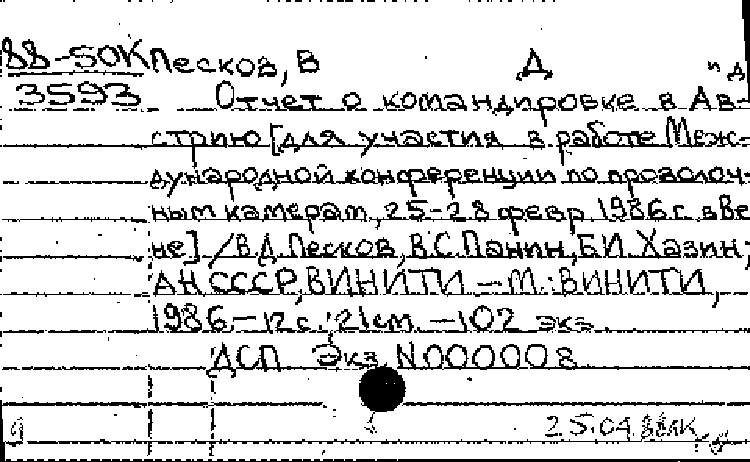 88-50К Песков, В Д "Д
3593 Отчет о командировке в Ав-
стрию [для участия в работе Меж-
дународной конференции по проволоч-
ным камерам, 25-28 февр. 1986 г. в Ве
не] / В.Д. Песков, В.С. Панин, Б.И. Хазин,
АН СССР, ВИНИТИ. — М.: ВИНИТИ,
1986. — 12 с.; 21 см. — 102 экз.
ДСП Экз. N000008
25.04